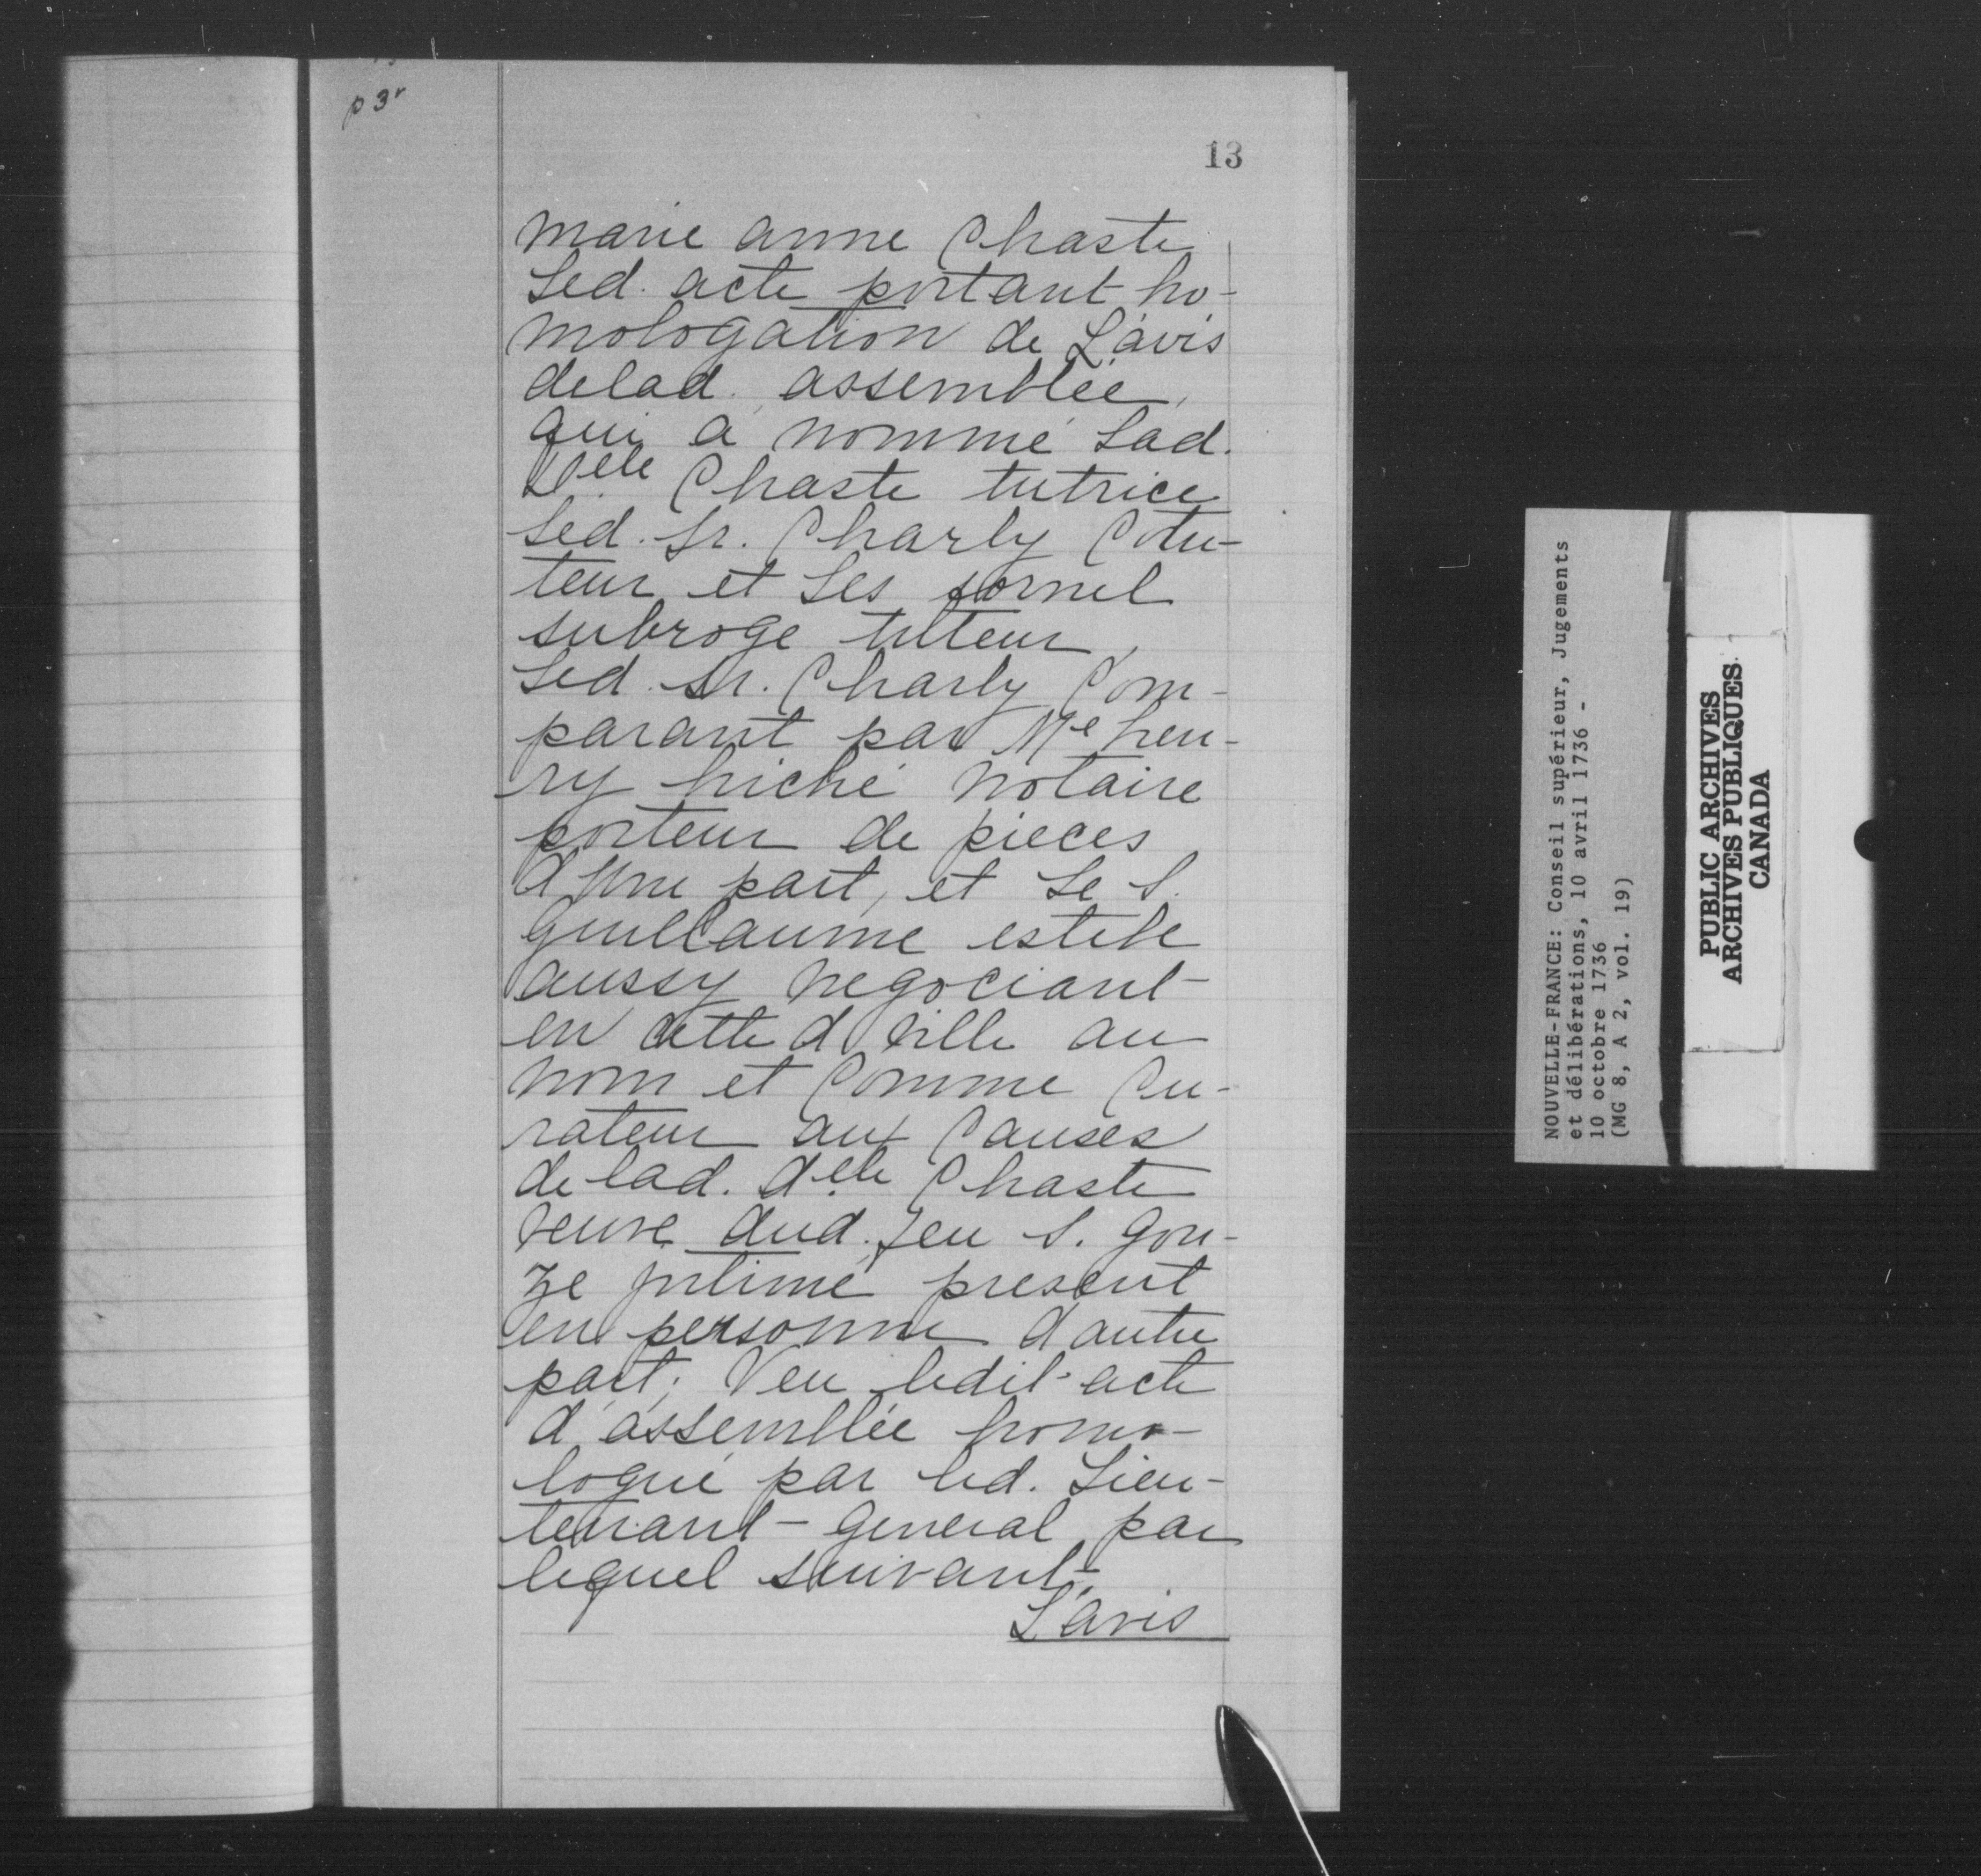 p 3r
13
marie anne Chaste
Led. acte portant ho-
mologation de L'avis
delad. assemblée,
qui a nommé Lad.
Delle Chaste tutrice
Led. Sr. Charly Cotu-
teur et Led fornel
subrogé tuteur,
Led. Sr. Charly Com-
parant par Me hen-
ry hiché notaire
porteur de pieces
d'Une part, et Le S.
guillaume estebe
aussy negociant
en cette d. Ville au
nom et Comme Cu-
rateur aux Causes
de lad. delle Chaste
Veuve dud. feu S. gou-
ze jntimé present
en personne d'autre
part; Veu ledit acte
d'assemblée homo-
logué par led. Lieu-
tenant-general par
lequel suivant
L'avis
NOUVELLE-FRANCE: Conseil supérieur, Jugements
et délibérations, 10 avril 1736 -
10 octobre 1736
(MG 8, A 2, vol. 19)
PUBLIC ARCHIVES
ARCHIVES PUBLIQUES
CANADA